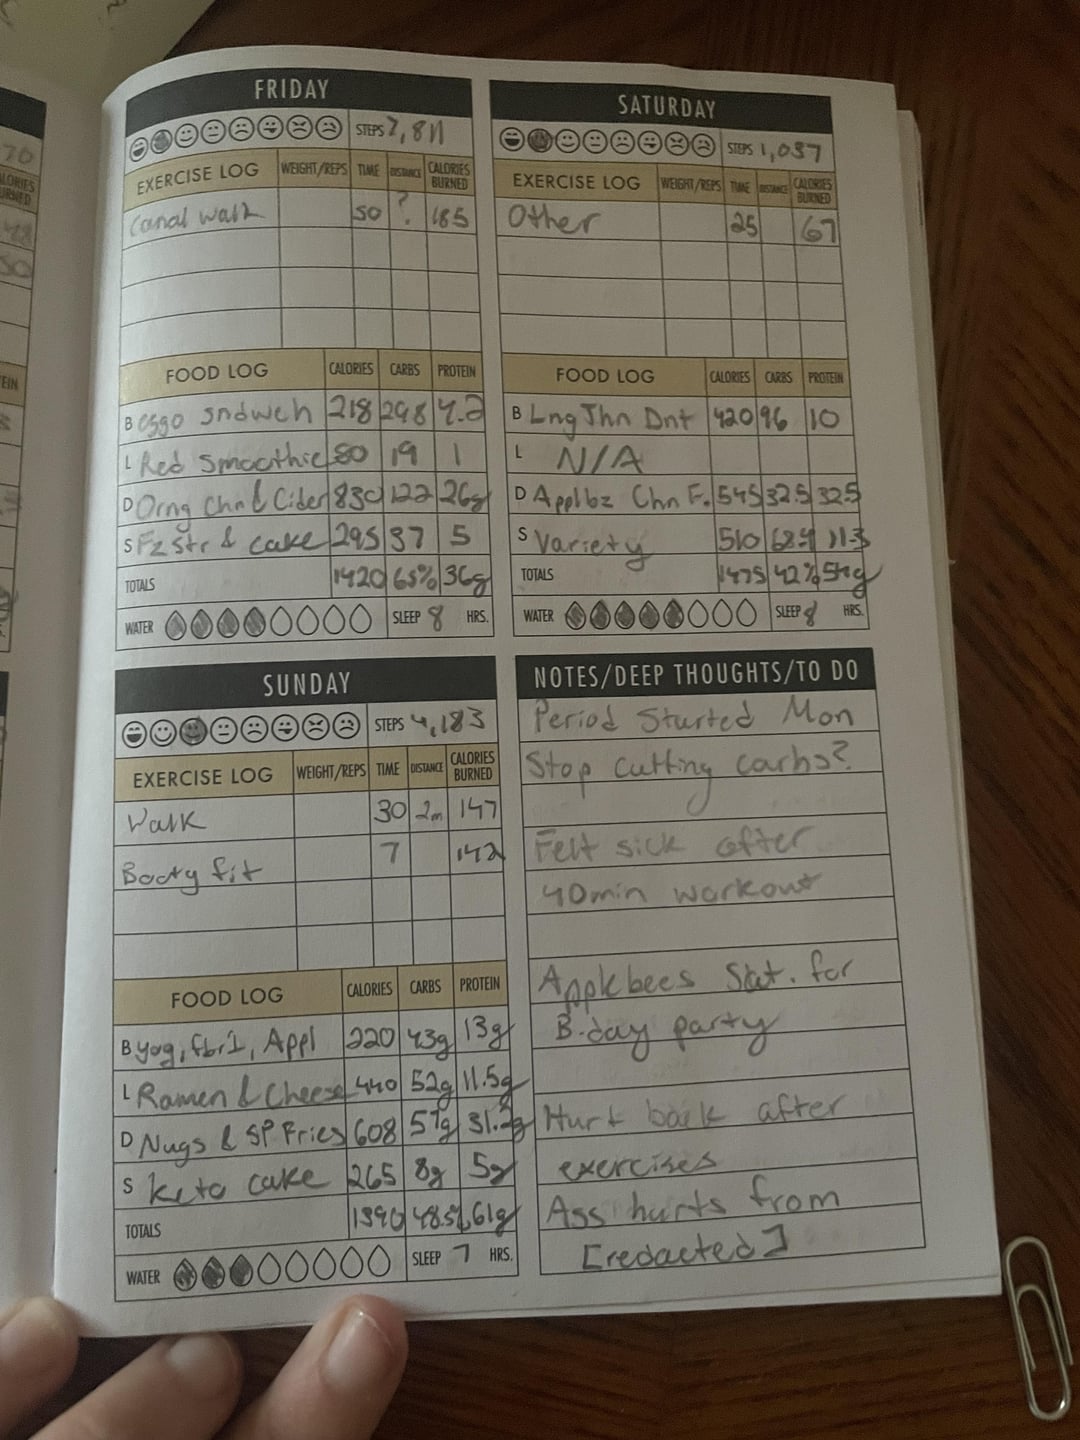 FRIDAY
STEPS 7,811
EXERCISE LOG WEIGHT/REPS TIME DISTANCE CALORIES BURNED
Canal walk 50 ? 185
FOOD LOG CALORIES CARBS PROTEIN
B eggo sndwch 218 29.8 4.2
L Red Smoothie 80 19 1
D Orng Chn & Cider 830 122 26g
S Fz str & cake 295 37 5
TOTALS 1420 65% 36g
WATER SLEEP 8 HRS.
SATURDAY
STEPS 1,037
EXERCISE LOG WEIGHT/REPS TIME DISTANCE CALORIES BURNED
Other 25 67
FOOD LOG CALORIES CARBS PROTEIN
B Lng Jhn Dnt 420 96 10
L N/A
D Applbz Chn F. 545 32.5 32.5
S Variety 510 68.4 11.3
TOTALS 1475 42% 54g
WATER SLEEP 8 HRS.
SUNDAY
STEPS 4,183
EXERCISE LOG WEIGHT/REPS TIME DISTANCE CALORIES BURNED
Walk 30 2m 147
Body fit 7 142
FOOD LOG CALORIES CARBS PROTEIN
B yog, Appl 220 43g 13g
L Ramen & Cheese 440 52g 11.5g
D Nugs & SP Fries 608 57g
S keto cake 265 8g 5g
TOTALS 48.5% 61g
WATER SLEEP 7 HRS.
NOTES/DEEP THOUGHTS/TO DO
Period Started Mon
Stop cutting carbs?
Felt sick after
40min workout
Applebees Sat. for
B-day party
Hurt back after
exercises
Ass hurts from
[redacted]